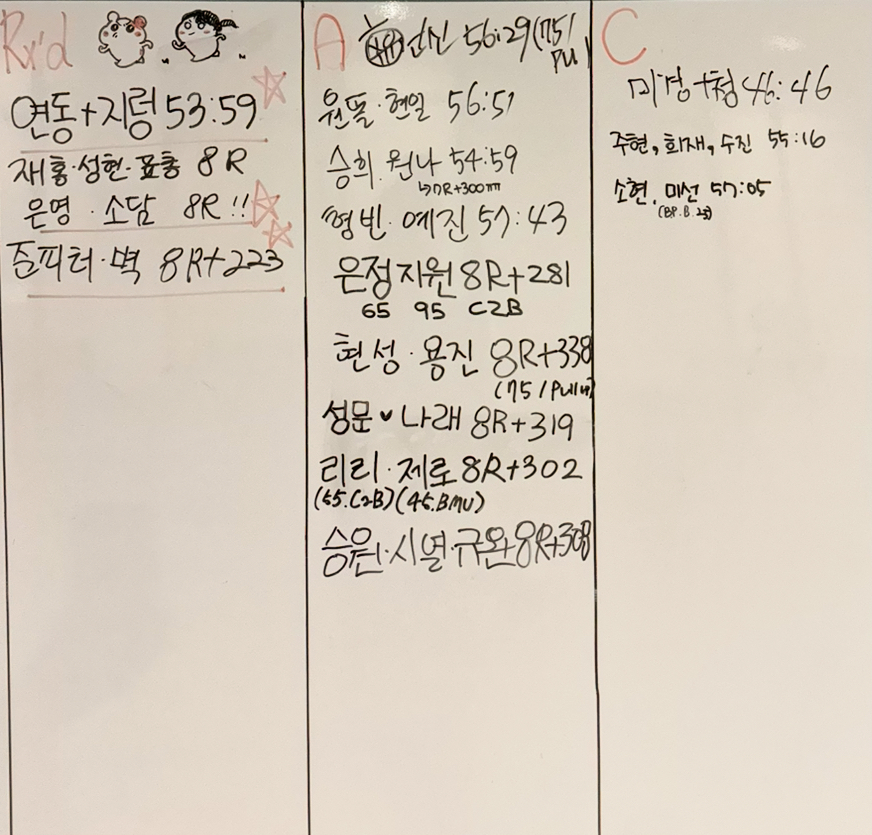 Rx'd
연동+지렁 53:59
재홍·성현·표총 8R
은명·소담 8R!!
준피터·벽 8R+223
A 56:29(75/
PU
원필·현일 56:51
승희·원나 54:59
↳7R+300m
형빈·예진 57:43
은정지원 8R+281
65 95 C2B
현성·용진 8R+338
(75/Pull
성문♥나래 8R+319
리리·제로 8R+302
(55.C2B)(45.BMU)
승원·시별·규완 8R+308
C
미경+청 46:46
주현, 희재, 수진 55:16
소현, 미선 57:05